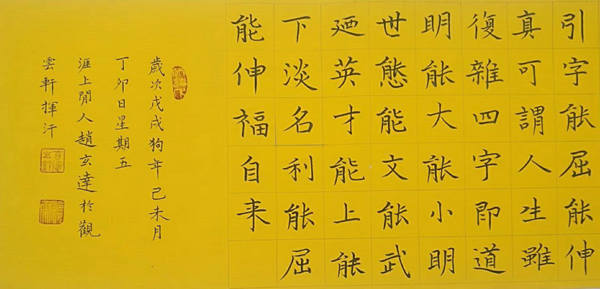 引字能屈能伸
真可謂人生雖
復雜四字即道
明能大能小明
世態能文能武
廼英才能上能
下淡名利能屈
能伸福自来
歲次戊戌狗年己未月
丁卯日星期五
涯上閒人趙玄達於觀
雲軒揮汗